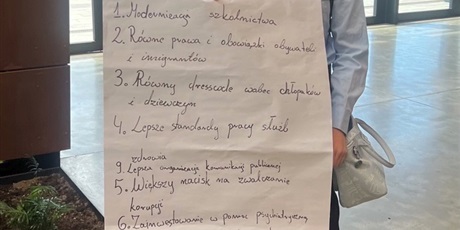 1. Modernizacja szkolnictwa
2. Równe prawa i obowiązki obywateli
i imigrantów
3. Równy dresscode wobec chłopaków
i dziewczyn
4. Lepsze standardy pracy służb
zdrowia
9. Lepsza organizacja komunikacji publicznej
5. Większy nacisk na zwalczanie
korupcji
6. Zainwestowanie w pomoc psychologiczną